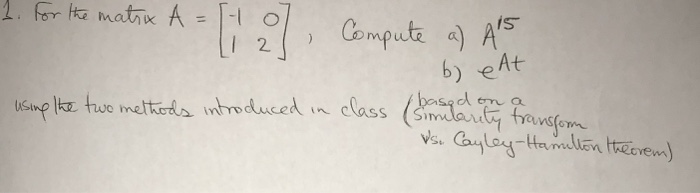 1. For the matrix A = [-1 0
1 2], Compute a) A^15
b) e^At
using the two methods introduced in class (based on a
similarity transform
vs. Cayley-Hamilton theorem)